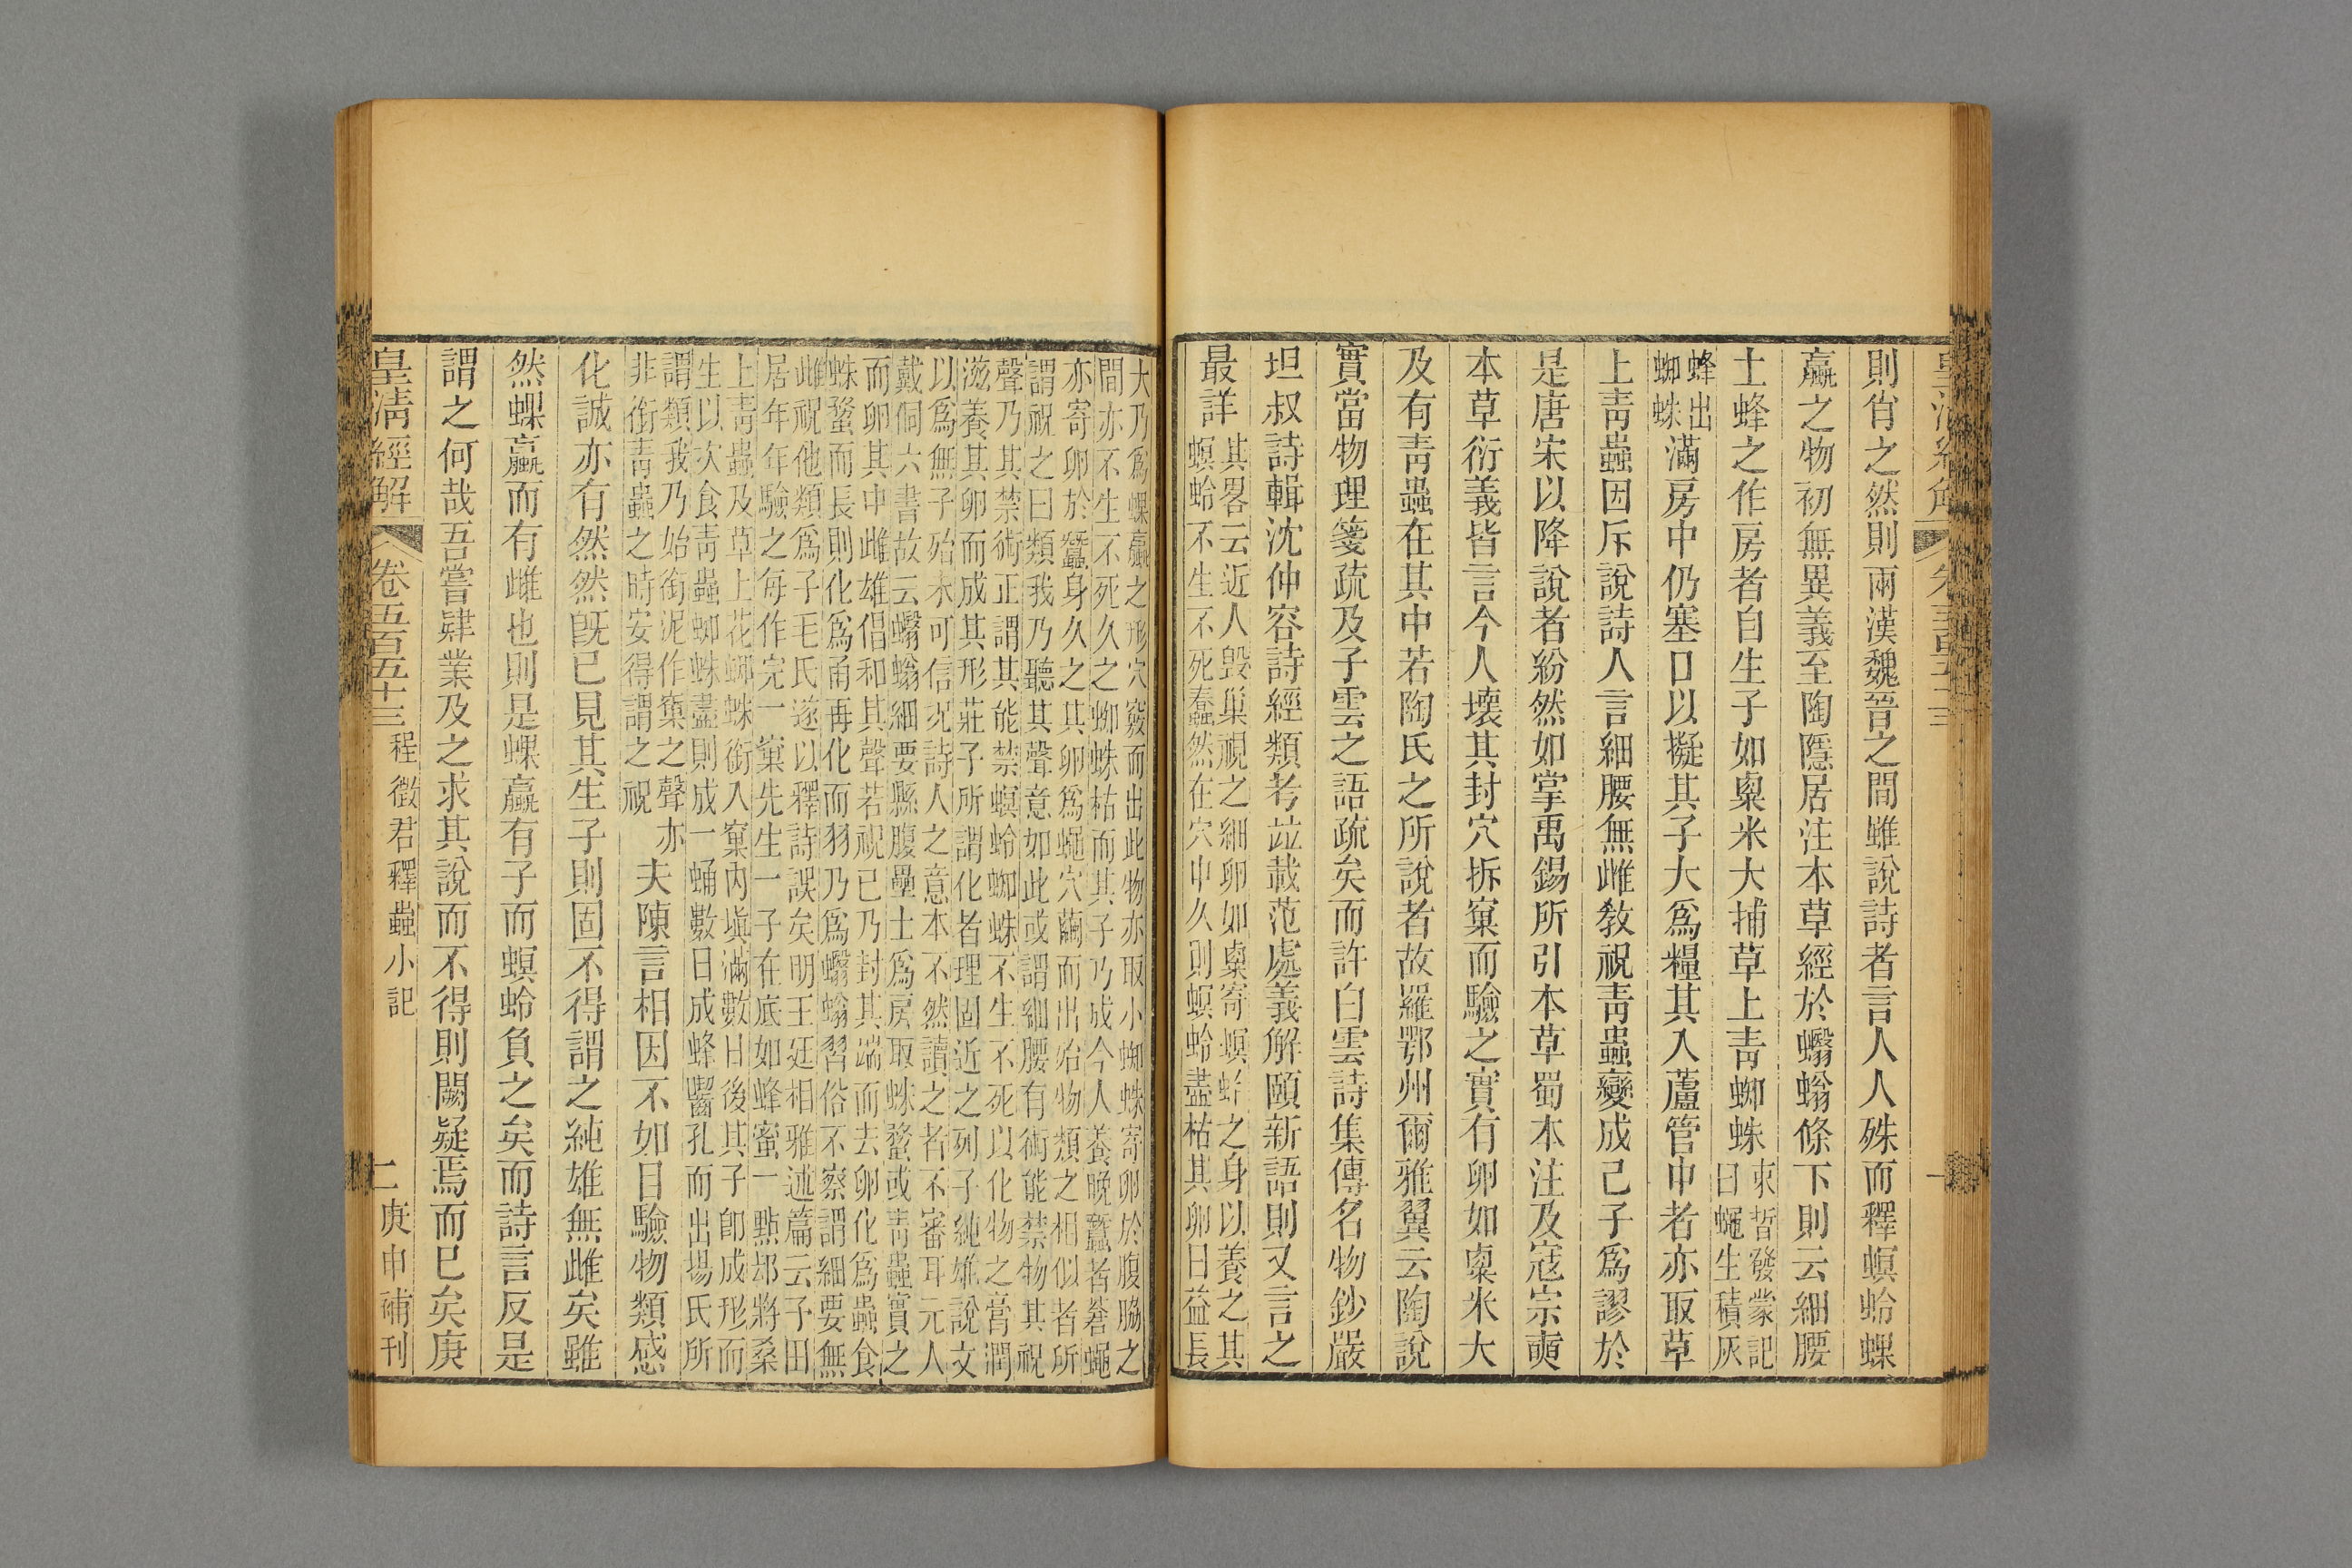 則肖之然則兩漢魏晉之間雖說詩者言人人殊而釋螟蛉蜾
蠃之物初無異義至陶隱居注本草經於蠮螉條下則云細腰
土蜂之作房者自生子如粟米大捕草上青蜘蛛束晳發蒙記
曰蠅生積灰
蜂出
蜘蛛滿房中仍塞口以擬其子大爲糧其入蘆管中者亦取草
上青蟲因斥說詩人言細腰無雌敎祝青蟲變成己子爲謬於
是唐宋以降說者紛然如掌禹錫所引本草蜀本注及寇宗奭
本草衍義皆言今人壞其封穴拆窠而驗之實有卵如粟米大
及有青蟲在其中若陶氏之所說者故羅鄂州爾雅翼云陶說
實當物理箋疏及子雲之語疏矣而許白雲詩集傳名物鈔嚴
坦叔詩輯沈仲容詩經類考竝載范處義解頤新語則又言之
最詳其畧云近人毀巢視之細卵如粟寄螟蛉之身以養之其
螟蛉不生不死蠢然在穴中久則螟蛉盡枯其卵日益長
大乃爲蜾蠃之形穴竅而出此物亦取小蜘蛛寄卵於腹脇之
間亦不生不死久之蜘蛛枯而其子乃成今人養晚蠶者蒼蠅
亦寄卵於蠶身久之其卵爲蠅穴繭而出殆物類之相似者所
謂祝之曰類我乃聽其聲意如此或謂細腰有術能禁物其祝
聲乃其禁術正謂其能禁螟蛉蜘蛛不生不死以化物之膏潤
滋養其卵而成其形莊子所謂化者理固近之列子純雄說文
以爲無子殆未可信況詩人之意本不然讀之者不審耳元人
戴侗六書故云蠮螉細要縣腹壘土爲房取蛛蝥或青蟲實之
而卵其中雌雄倡和其聲若祝已乃封其端而去卵化爲蟲食
蛛蝥而長則化爲甬再化而羽乃爲蠮螉習俗不察謂細要無
雌祝他類爲子毛氏遂以釋詩誤矣明王廷相雅述篇云予田
居年年驗之每作完一窠先生一子在底如蜂蜜一點却將桑
上青蟲及草上花蜘蛛銜入窠內塡滿數日後其子卽成形而
生以次食青蟲蜘蛛盡則成一蛹數日成蜂齧孔而出塲氏所
謂類我乃始銜泥作窠之聲亦
非銜青蟲之時安得謂之祝夫陳言相因不如日驗物類感
化誠亦有然然旣已見其生子則固不得謂之純雄無雌矣雖
然蜾蠃而有雌也則是蜾蠃有子而螟蛉負之矣而詩言反是
謂之何哉吾嘗肄業及之求其說而不得則闕疑焉而已矣庚
皇清經解 卷五百五十三 程徵君釋蟲小記 二 庚申補刊